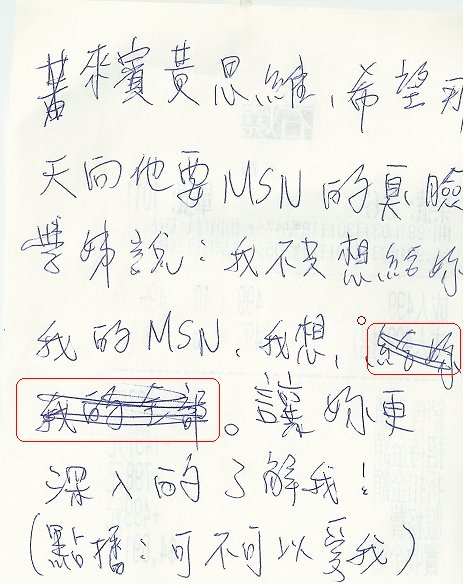 來賓黃思維,希望
天向他要MSN的臭臉
學姊說:我不只想給妳
我的MSN、我想,給妳
我的全部。讓妳更
深入的了解我!
(點播:可不可以愛我)